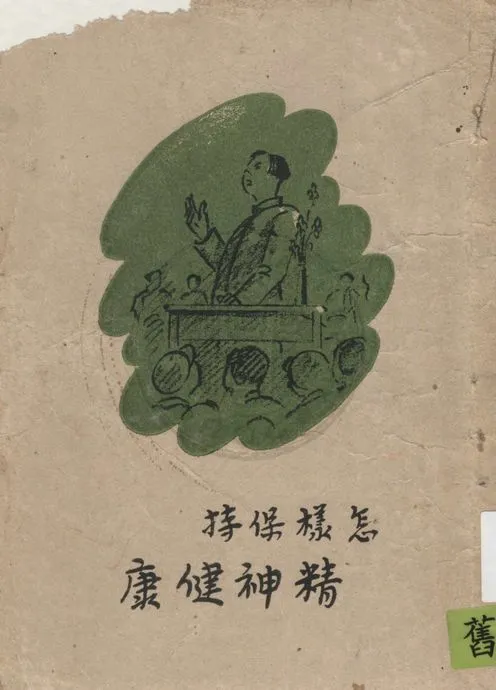 怎樣保持
精神健康
舊